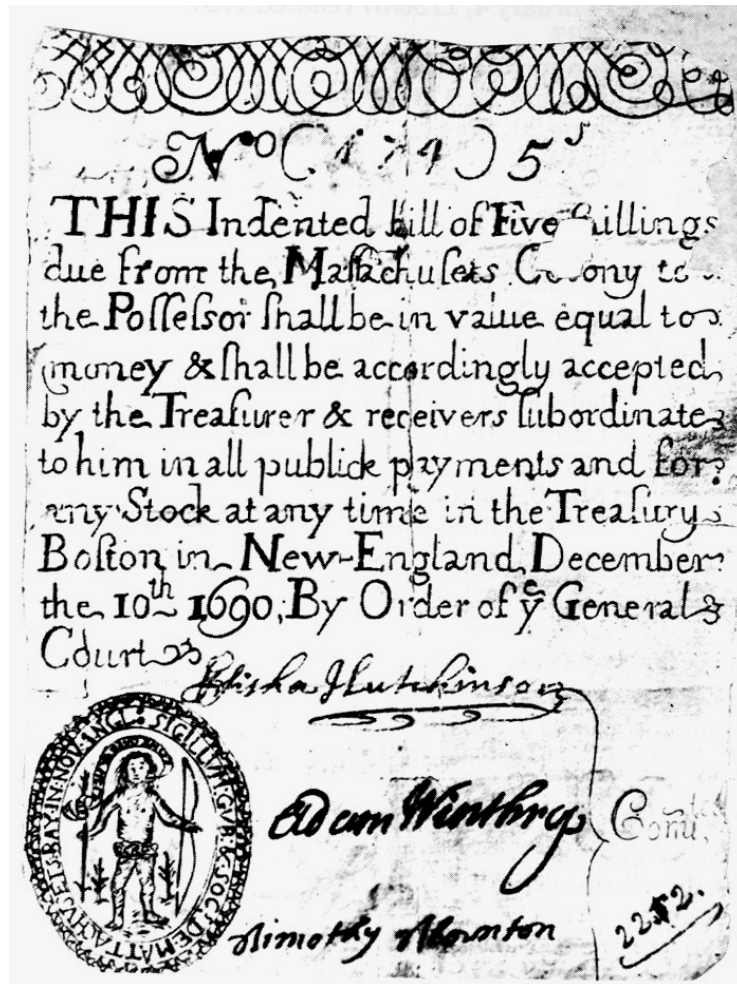 Nº (1741) 5ˢ
THIS Indented Bill of Five Shillings
due from the Maſſachuſets Colony to
the Poſſeſsor ſhall be in value equal to
money & ſhall be accordingly accepted
by the Treaſurer & receivers ſubordinate
to him in all publick payments and for
any Stock at any time in the Treaſury
Boſton in New-England, December
the 10th 1690, By Order of yͤ General
Court
Elisha Hutchinson
Adam Winthrop
Timothy Thornton
Comtee
SIGILLUM GUB & SOC: DE MATTACHUSETS BAY IN NOV: ANGL: